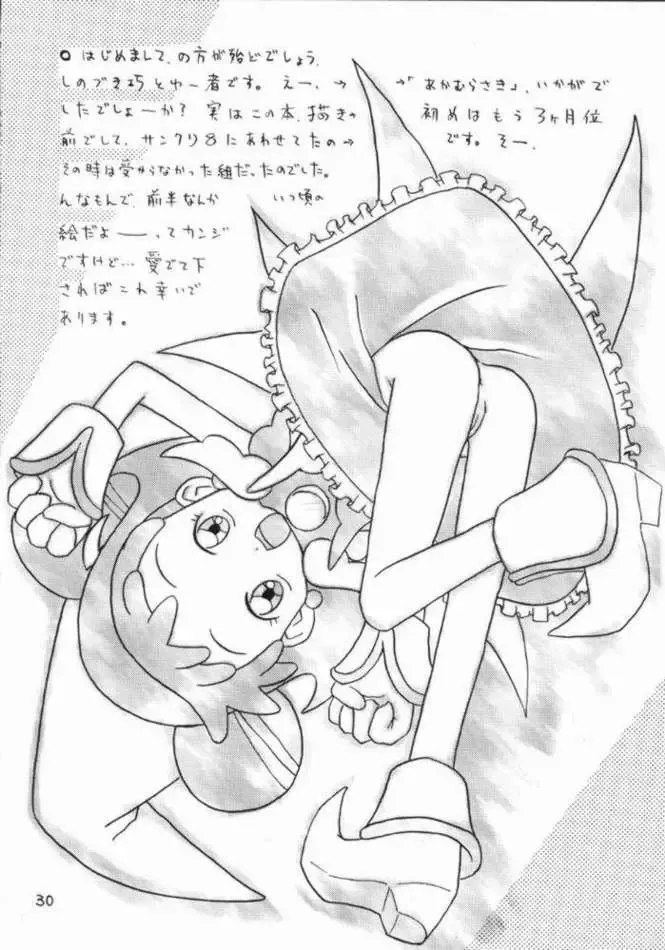 ○はじめまして、の方が殆どでしょう、
しのづき巧とゆー者です。えー、→
→「あかむらさき」、いかがで
したでしょーか? 実はこの本、描き→
初めはもう3ヶ月位
前でして、サンクリ8にあわせてたの→
です。そー、
その時は受からなかった組だったのでした。
んなもんで、前半なんか いつ頃の
絵だよーーってカンジ
ですけど…愛でて下
さればこれ幸いで
あります。
30